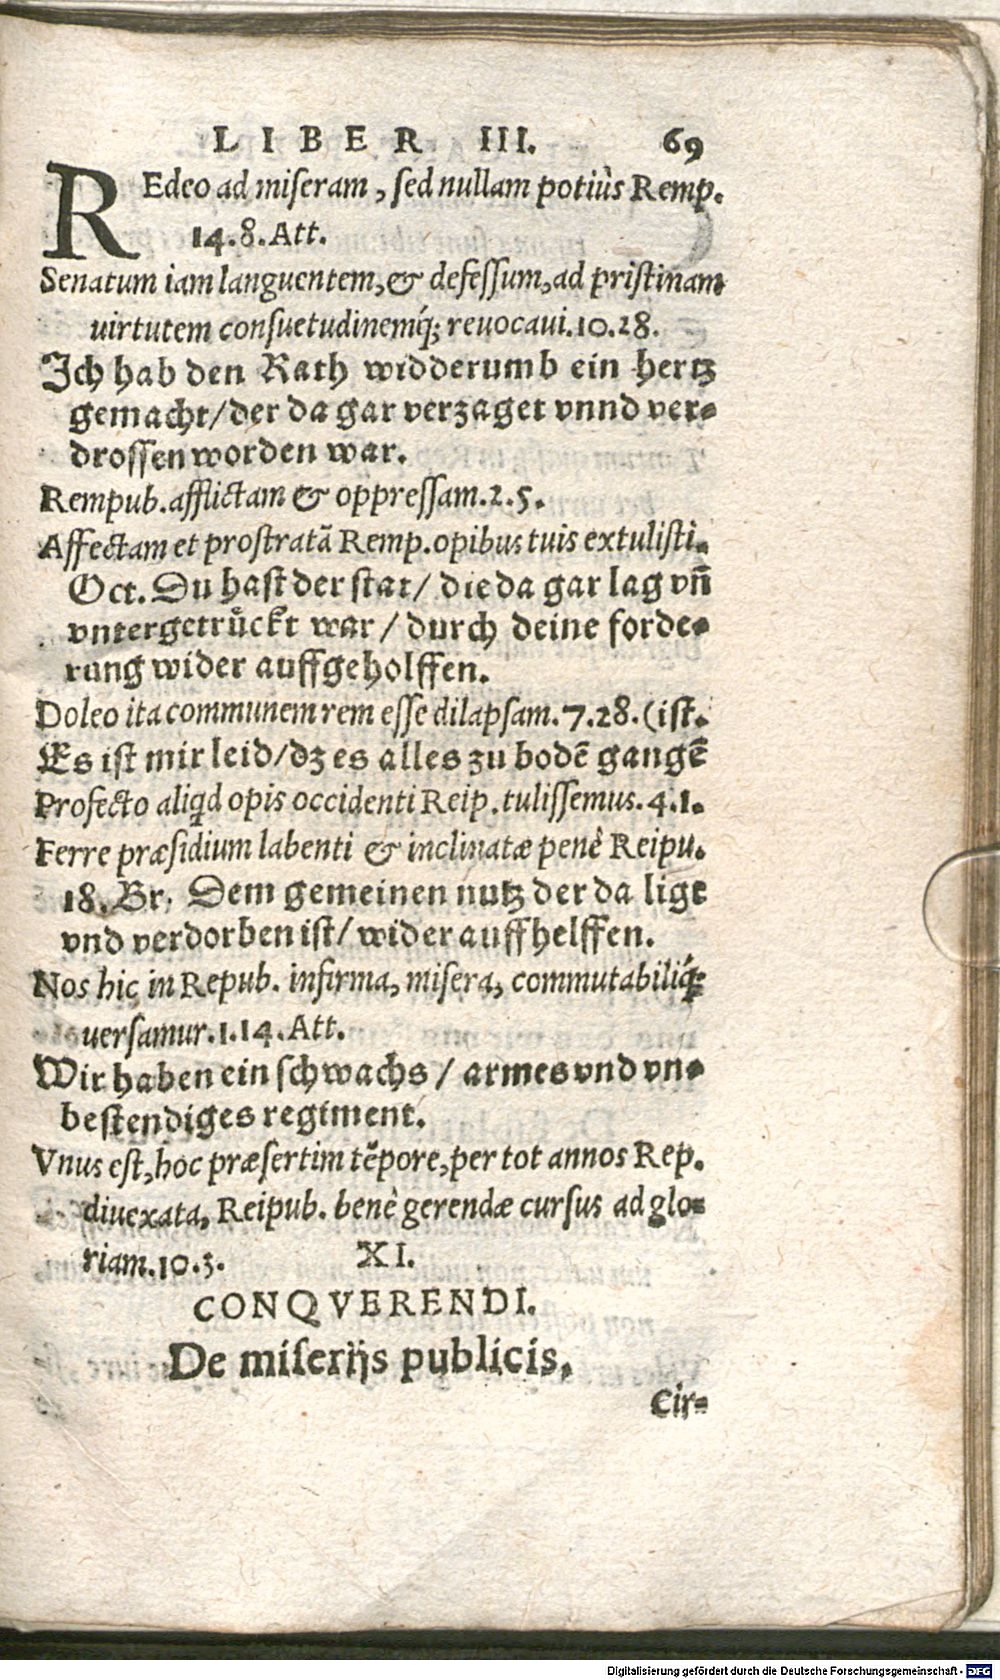 LIBER III. 69
REdeo ad miseram, sed nullam potiùs Remp.
14.8. Att.
Senatum iam languentem, & defessum, ad pristinam
uirtutem consuetudinemq́; reuocaui. 10.28.
Ich hab den Rath widderumb ein hertz
gemacht/ der da gar verzaget vnnd ver-
drossen worden war.
Rempub. afflictam & oppressam. 2.5.
Affectam et prostratā Remp. opibus tuis extulisti.
Oct. Du hast der stat/ die da gar lag vñ
vntergetruͤckt war/ durch deine forde-
rung wider auffgeholffen.
Doleo ita communem rem esse dilapsam. 7.28. (ist.
Es ist mir leid/ dz es alles zu bodē gangē
Profecto aliqd opis occidenti Reip. tulissemus. 4.1.
Ferre præsidium labenti & inclinatæ penè Reipu.
18. Br. Dem gemeinen nutz der da ligt
vnd verdorben ist/ wider auffhelffen.
Nos hic in Repub. infirma, misera, commutabiliq́;
uersamur. 1.14. Att.
Wir haben ein schwachs/ armes vnd vn-
bestendiges regiment.
Vnus est, hoc præsertim tēpore, per tot annos Rep.
diuexata, Reipub. benè gerendæ cursus ad glo-
riam. 10.3. XI.
CONQVERENDI.
De miserijs publicis.
Cir-
Digitalisierung gefördert durch die Deutsche Forschungsgemeinschaft - DFG